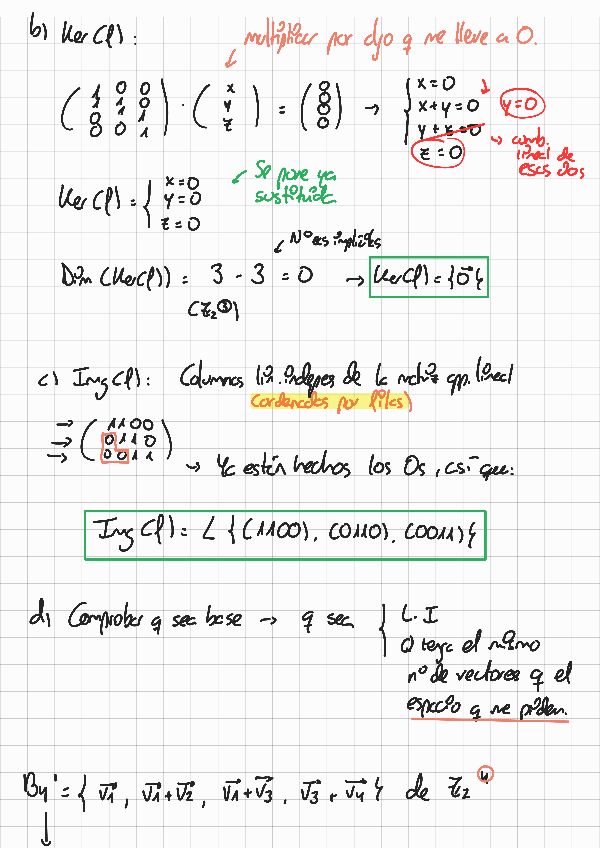 b) Ker(f): multiplicar por algo q me lleve a 0.
( 1 0 0 / 1 1 0 / 0 1 1 / 0 0 1 ) · ( x / y / z ) = ( 0 / 0 / 0 / 0 ) → { x=0
x+y=0 y=0
y+z=0
z=0
→ comb. lineal de esas dos
Ker(f) = { x=0
y=0
z=0
Se pone ya sustituida
Nº ecs implícitas
Dim(Ker(f)) = 3 - 3 = 0 → Ker(f) = {0⃗}
(Z₂③)
c) Img(f): Columnas lin. indepes de la matriz app. lineal
(ordenadas por filas)
→ ( 1 1 0 0
→ 0 1 1 0
→ 0 0 1 1 )
→ Ya están hechos los 0s, así que:
Img(f) = L {(1100), (0110), (0011)}
d) Comprobar q sea base → q sea { L.I
Q tenga el mismo
nº de vectores q el
espacio q me piden.
B₄' = { v₁⃗, v₁⃗+v₂⃗, v₁⃗+v₃⃗, v₃⃗+v₄⃗ } de Z₂⁴